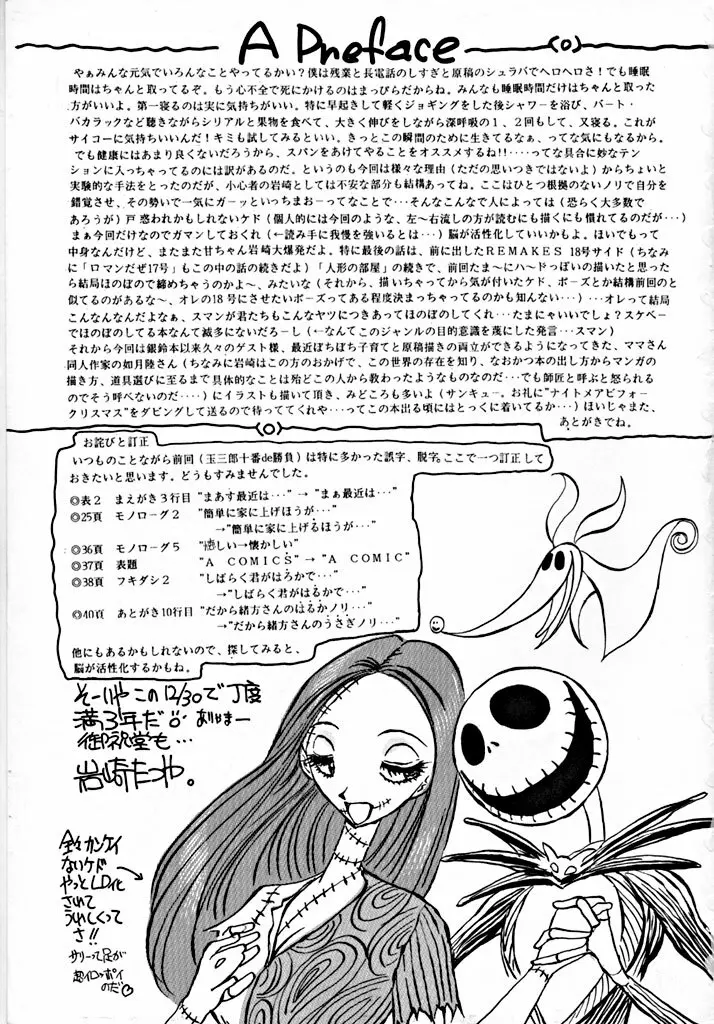 A Preface
やぁみんな元気でいろんなことやってるかい？僕は残業と長電話のしすぎと原稿のシュラバでヘロヘロさ！でも睡眠
時間はちゃんと取ってるぞ。もう心不全で死にかけるのはまっぴらだからね。みんなも睡眠時間だけはちゃんと取った
方がいいよ。第一寝るのは実に気持ちがいい。特に早起きして軽くジョギングをした後シャワーを浴び、バート・
バカラックなど聴きながらシリアルと果物を食べて、大きく伸びをしながら深呼吸の１、２回もして、又寝る。これが
サイコーに気持ちいいんだ！キミも試してみるといい。きっとこの瞬間のために生きてるなぁ、ってな気にもなるから。
でも健康にはあまり良くないだろうから、スパンをあけてやることをオススメするね!!‥‥ってな具合に妙なテン
ションに入っちゃってるのには訳があるのだ。というのも今回は様々な理由（ただの思いつきではないよ）からちょいと
実験的な手法をとったのだが、小心者の岩崎としては不安な部分も結構あってね。ここはひとつ根拠のないノリで自分を
錯覚させ、その勢いで一気にガーッといっちまおーってなことで‥‥そんなこんなで人によっては（恐らく大多数で
あろうが）戸惑われかもしれないケド（個人的には今回のような、左～右流しの方が読むにも描くにも慣れてるのだが‥‥）
まぁ今回だけなのでガマンしておくれ（←読み手に我慢を強いるとは‥‥）脳が活性化していいかもよ。ほいでもって
中身なんだけど、またまた甘ちゃん岩崎大爆発だよ。特に最後の話は、前に出したＲＥＭＡＫＥＳ 18号サイド（ちなみ
に「ロマンだぜ17号」もこの中の話の続きだよ）「人形の部屋」の続きで、前回たま～にハ～ドっぽいの描いたと思った
ら結局ほのぼので締めちゃうのかよ～、みたいな（それから、描いちゃってから気が付いたケド、ボーズとか結構前回のと
似てるのがあるな～、オレの18号にさせたいボーズってある程度決まっちゃってるのかも知んない‥‥）‥‥オレって結局
こんなんなんだよなぁ、スマンが君たちもこんなヤツにつきあってほのぼのしてくれ‥‥たまにゃいいでしょ？スケベー
でほのぼのしてる本なんて滅多にないだろーし（←なんてこのジャンルの目的意識を蔑にした発言‥‥スマン）
それから今回は銀鈴本以来久々のゲスト様、最近ぼちぼち子育てと原稿描きの両立ができるようになってきた、ママさん
同人作家の如月陸さん（ちなみに岩崎はこの方のおかげで、この世界の存在を知り、なおかつ本の出し方からマンガの
描き方、道具選びに至るまで具体的なことは殆どこの人から教わったようなものなのだ‥‥でも師匠と呼ぶと怒られる
のでそう呼べないのだ‥‥）にイラストも描いて頂き、みどころも多いよ（サンキュー。お礼に"ナイトメアビフォー
クリスマス"をダビングして送るので待っててくれや‥‥ってこの本出る頃にはとっくに着いてるか‥‥）ほいじゃまた、
あとがきでね。
お詫びと訂正
いつものことながら前回（玉三郎十番de勝負）は特に多かった誤字、脱字、ここで一つ訂正して
おきたいと思います。どうもすみませんでした。
◎表２ まえがき３行目 "まあす最近は‥‥"→"まぁ最近は‥‥"
◎25頁 モノローグ２ "簡単に家に上げほうが‥‥"
→"簡単に家に上げるほうが‥‥"
◎36頁 モノローグ５ →懐かしい"
◎37頁 表題 "Ａ ＣＯＭＩＣＳ"→"Ａ ＣＯＭＩＣ"
◎38頁 フキダシ２ "しばらく君がはろかで‥‥"
→"しばらく君がはるかで‥‥"
◎40頁 あとがき10行目 "だから緒方さんのはるかノリ‥‥"
→"だから緒方さんのうさぎノリ‥‥"
他にもあるかもしれないので、探してみると、
脳が活性化するかもね。
そーいや この12/30で丁度
満3年だ ありはまー
御祝堂も…
岩崎たつや。
全々カンケイ
ないケド
やっとLD化
されて
うれしくって
さ!!
サリーって足が
超イロッポイ
のだ♡